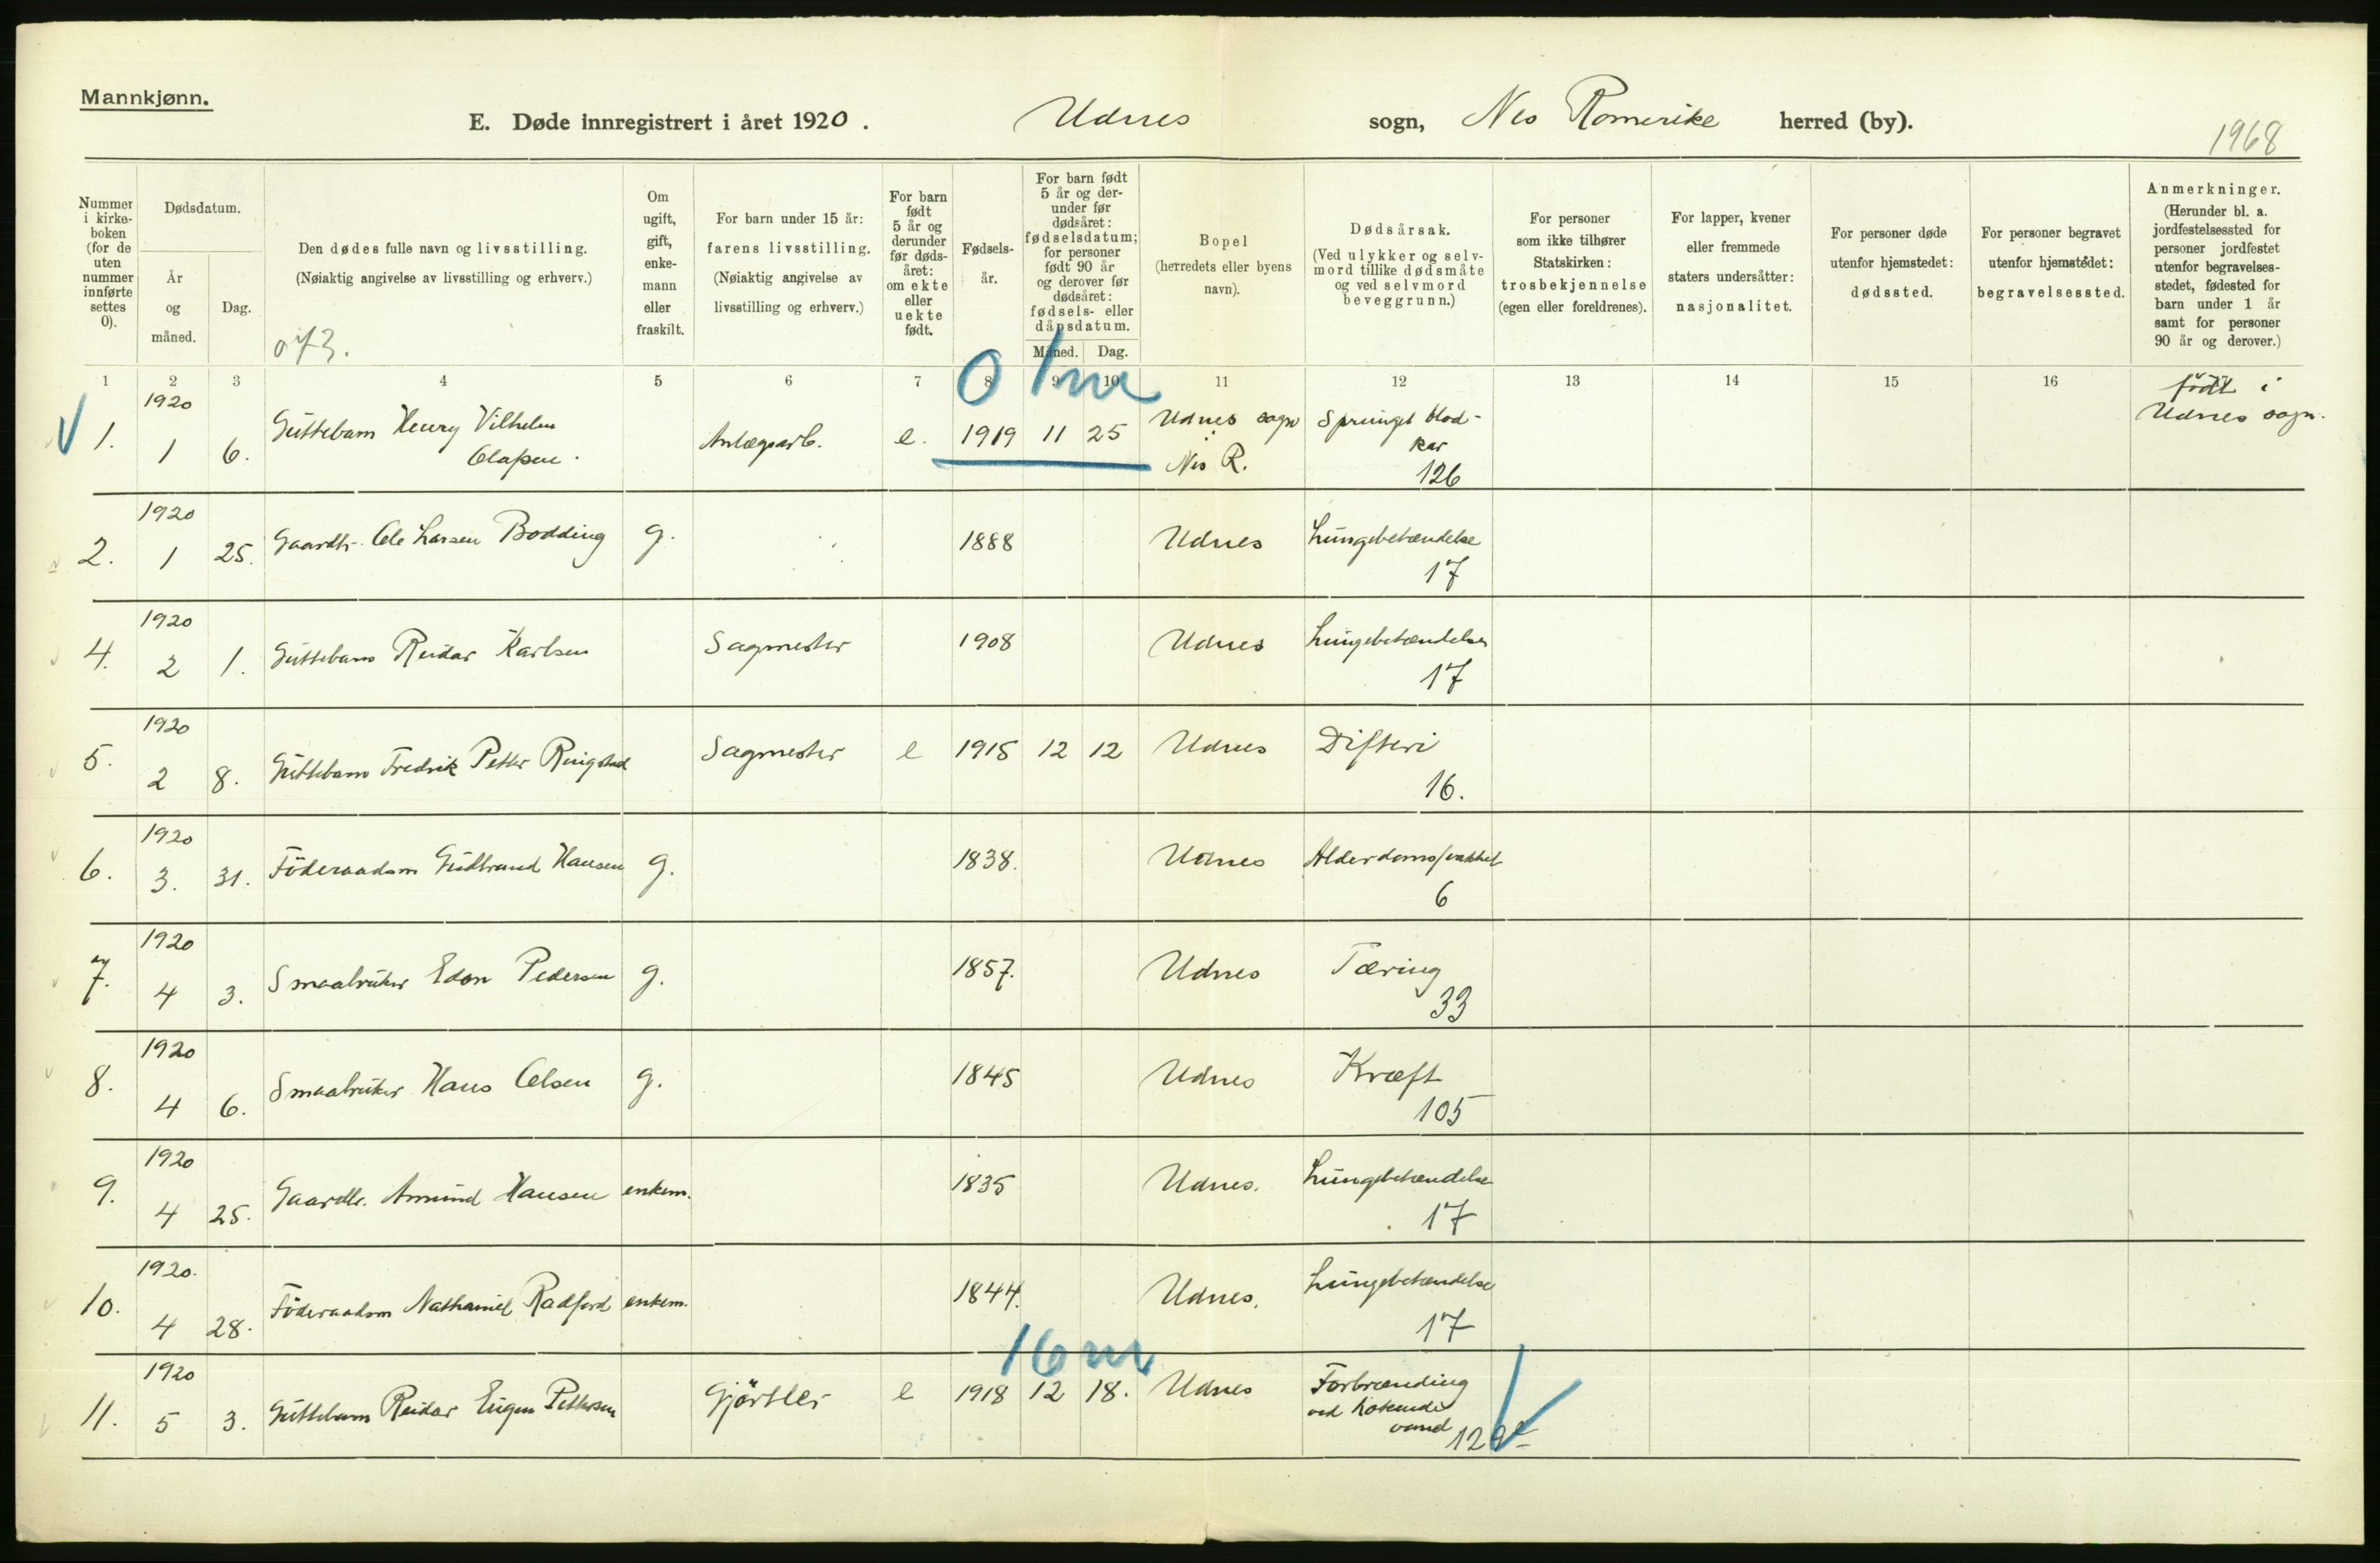 Mannkjønn.
E. Døde innregistrert i året 1920. Udnes sogn, Nes Romerike herred (by).
1968
Nummer i kirke-boken (for de uten nummer innførte settes 0).
Dødsdatum.
År og måned.
Dag.
Den dødes fulle navn og livsstilling.
(Nøiaktig angivelse av livsstilling og erhverv.)
073.
Om ugift, gift, enke-mann eller fraskilt.
For barn under 15 år:
farens livsstilling.
(Nøiaktig angivelse av livsstilling og erhverv.)
For barn født 5 år og derunder før døds-året: om ekte eller uekte født.
Fødsels-år.
For barn født 5 år og der-under før dødsåret: fødselsdatum; for personer født 90 år og derover før dødsåret: fødsels- eller dåpsdatum.
Måned. Dag.
Bopel
(herredets eller byens navn).
Dødsårsak.
(Ved ulykker og selv-mord tillike dødsmåte og ved selvmord beveggrunn.)
For personer som ikke tilhører Statskirken: trosbekjennelse (egen eller foreldrenes).
For lapper, kvener eller fremmede staters undersåtter: nasjonalitet.
For personer døde utenfor hjemstedet: dødssted.
For personer begravet utenfor hjemstedet: begravelsessted.
Anmerkninger.
(Herunder bl. a. jordfestelsessted for personer jordfestet utenfor begravelses-stedet, fødested for barn under 1 år samt for personer 90 år og derover.)
1 2 3 4 5 6 7 8 9 10 11 12 13 14 15 16
0 1m
1. 1920 1 6. Guttebarn Henry Vilhelm Olafsen. Anlægsarb. e. 1919 11 25 Udnes sogn Nes R. Sprunget blod-kar 126 født i Udnes sogn.
2. 1920 1 25. Gaardbr. Ole Larsen Bodding g. 1888 Udnes Lungebetændelse 17
4. 1920 2 1. Guttebarn Reidar Karlsen Sagmester 1908 Udnes Lungebetændelse 17
5. 1920 2 8. Guttebarn Fredrik Petter Ringstad Sagmester e 1915 12 12 Udnes Difteri 16.
6. 1920 3. 31. Föderaadsm Gudbrand Hansen g. 1838. Udnes Alderdomssvakhet 6
7. 1920 4 3. Smaabruker Edon Pedersen g. 1857. Udnes Tæring 33
8. 1920 4 6. Smaabruker Hans Olsen g. 1845 Udnes Kræft 105
9. 1920 4 25. Gaardbr. Amund Hansen enkem. 1835 Udnes. Lungebetændelse 17
10. 1920. 4 28. Föderaadsm Nathaniel Radford enkem. 1844. Udnes. Lungebetændelse 17
16 m
11. 1920 5 3. Guttebarn Reidar Eugen Pettersen Gjørtler e 1918 12 18. Udnes Forbrænding ved kokende vand